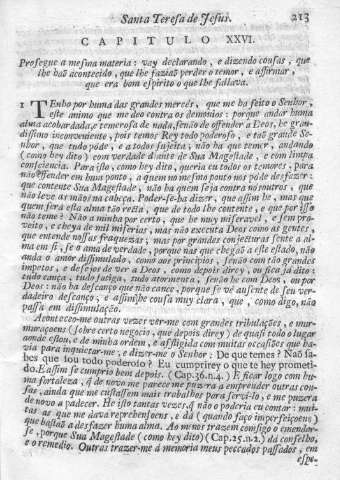 Santa Teresa de Jesus. 213
CAPITULO XXVI.
Prosegue a mesma materia: vay declarando, e dizendo cousas, que
lhe haõ acontecido, que lhe faziaõ perder o temor, e affirmar,
que era bom espirito o que lhe fallava.
1 TEnho por huma das grandes mercès, que me ha feito o Senhor,
este animo que me deo contra os demonios: porque andar huma
alma acobardada, e temerosa de nada, senaõ de offender a Deos, he gran-
dissimo inconveniente, pois temos Rey todo poderoso, e taõ grande Se-
nhor, que tudo pòde, e a todos sujeita; naõ ha que temer, andando
(como hey dito) com verdade diante de Sua Magestade, e com limpa
consciencia. Para isto, como hey dito, queria eu todos os temores, para
naõ offender em hum ponto, a quem no mesmo ponto nos pòde desfazer:
que contente Sua Magestade, naõ ha quem seja contra nòs outros, que
naõ leve as mãos na cabeça. Poderseha dizer, que assim he, mas que
quem serà esta alma taõ recta, que de todo lhe contente, e que por isso
naõ teme? Naõ a minha por certo, que he muy miseravel, e sem pro-
veito, e cheya de mil miserias, mas naõ executa Deos como as gentes,
que entende nossas fraquezas; mas por grandes conjecturas sente a al-
ma em si, se o ama de verdade; porque nas que chegaõ a este estado, naõ
anda o amor dissimulado, como aos principios, senaõ com taõ grandes
impetos, e desejos de ver a Deos, como depois direy, ou fica jà dito:
tudo cança, tudo fatiga, tudo atormenta, senaõ he com Deos, ou por
Deos: naõ ha descanço que naõ canse, porque se vè ausente de seu ver-
dadeiro descanço, e assim he cousa muy clara, que, como digo, naõ
passa em dissimulação.
Aconteceo-me outras vezes ver-me com grandes tribulações, e mur-
murações (sobre certo negocio, que depois direy) de quasi todo o lugar
aonde estou, e de minha ordem, e affligida com muitas occasiões que ha-
via para inquietar-me, e dizer-me o Senhor: De que temes? Naõ sa-
bes que sou todo poderoso? Eu cumprirey o que te hey prometi-
do. E assim se cumprio bem depois. (Cap. 36. n. 4.) E ficar logo com hu-
ma fortaleza, q̃ de novo me parece me puzera a emprender outras cou-
sas, ainda que me custassem mais trabalhos para servi-lo, e me puzera
de novo a padecer. He isto tantas vezes, q̃ naõ o poderia eu contar: mui-
tas as que me dava reprehensoens, e dà (quando faço imperfeiçoens)
que bastaõ a desfazer huma alma. Ao menos trazem consigo o emendar-
se, porque Sua Magestade (como hey dito) (Cap. 25. n. 2.) dà conselho,
e o remedio. Outras trazer-me à memoria meus peccados passados, em
espe-